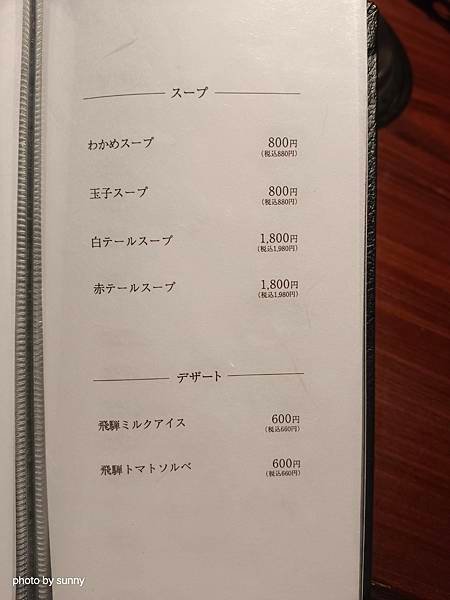 スープ
わかめスープ 800円
(税込880円)
玉子スープ 800円
(税込880円)
白テールスープ 1,800円
(税込1,980円)
赤テールスープ 1,800円
(税込1,980円)
デザート
飛騨ミルクアイス 600円
(税込660円)
飛騨トマトソルベ 600円
(税込660円)
photo by sunny